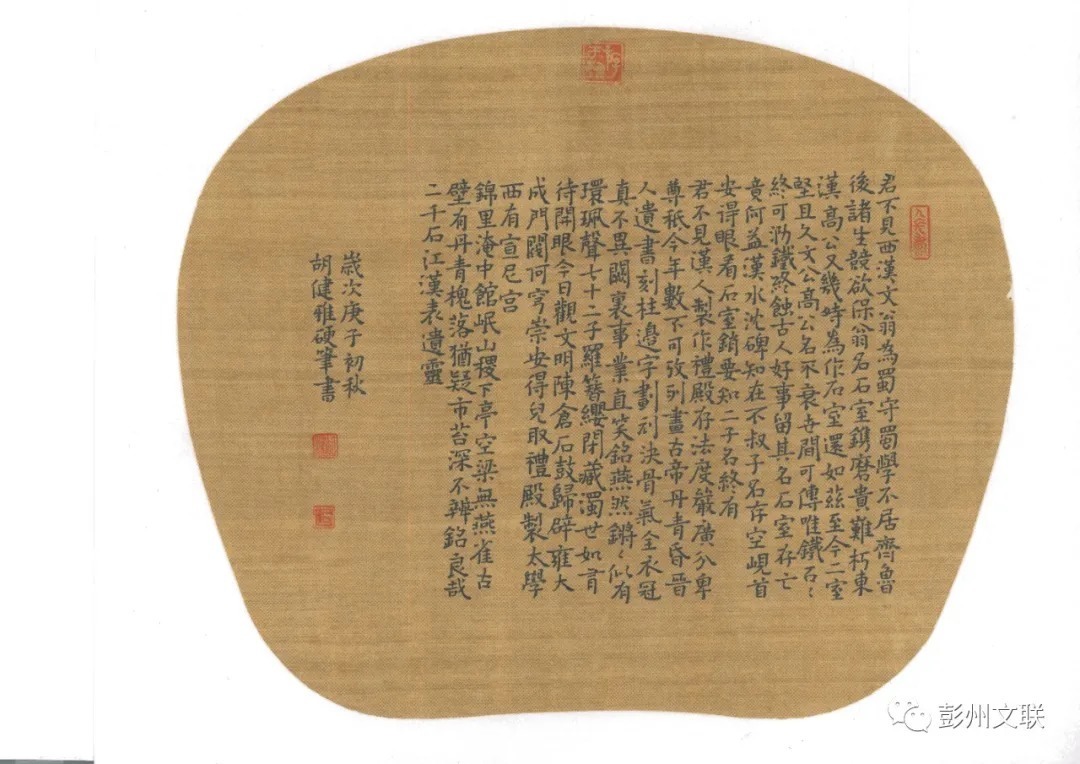 君不見西漢文翁為蜀守蜀學不居齊魯
後諸生競欲保翁名石室鐫磨貴難朽東
漢高公又幾時為作石室還如茲至今二室
堅且久文公高公名不衰世間可傳唯鐵石〻
終可泐鐵終蝕古人好事留其名石室存亡
竟何益漢水沈碑知在不叔子名存空峴首
安得眼看石室銷要知二子名終有
君不見漢人製作禮殿存法度嚴廣分卑
尊秪今年數不可攷列畫古帝丹青昏晉
人遺書刻柱邊字劃刓決骨氣全衣冠
真不異闕裏事業直笑銘燕然鏘〻似有
環珮聲七十二子羅簪纓閉藏濁世如有
待開眼今日觀文明陳倉石鼓歸辟雍大
成門闕何穹崇安得兒取禮殿製太學
西有宣尼宮
錦里淹中館岷山稷下亭空梁無燕雀古
壁有丹青槐落猶疑市苔深不辨銘良哉
二千石江漢表遺靈
歲次庚子初秋
胡健雅硬筆書
彭州文联